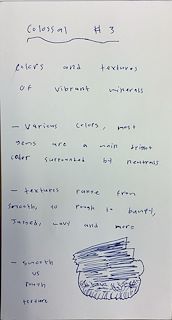 Colossal # 3
colors and textures
of vibrant minerals
- various colors, most
gems are a main bright
color surrounded by neutrals
- textures range from
smooth, to rough to bumpy,
Jagged, wavy and more
- smooth
vs
rough
texture